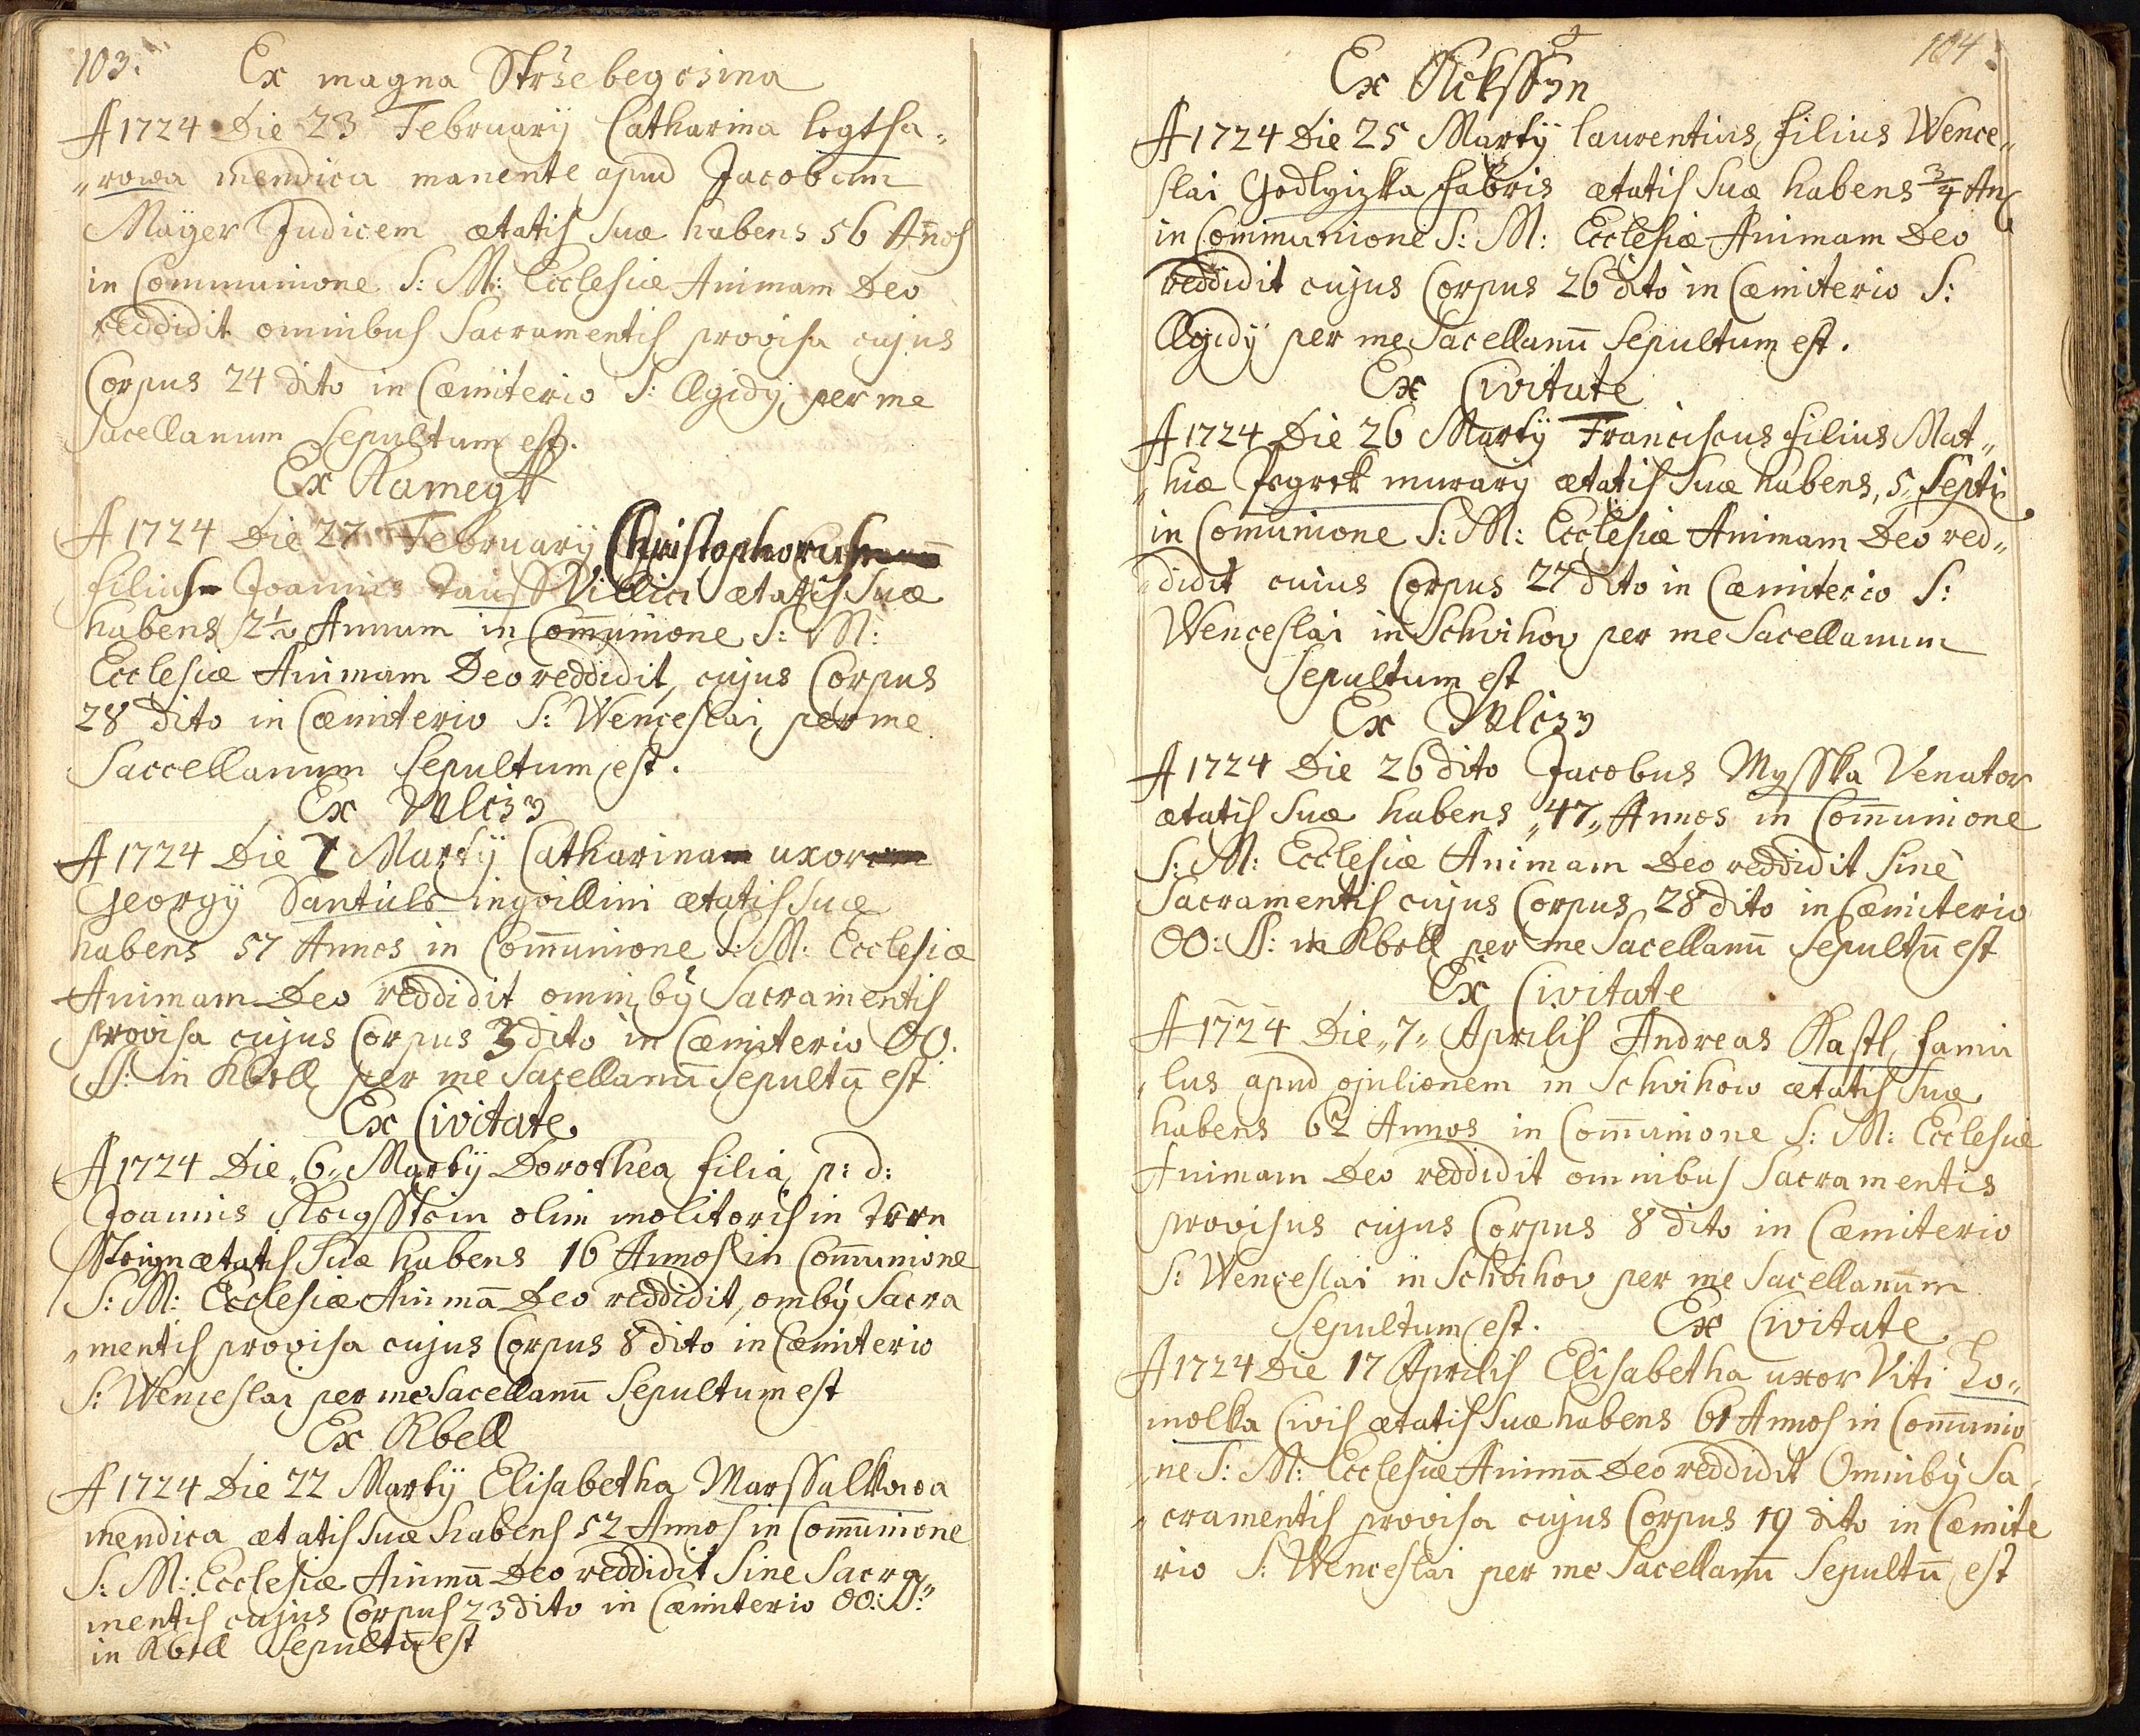 103.
Ex magna Stršebegczina
A 1724 Die 23 Februarÿ Catharina legtsa„
„rowa mendica manente apud Jacobum
Mayer Judicem ætatis suæ habens 56 Annos
in Communione S: M: Ecclesiæ Animam Deo
reddidit omnibus Sacramentis provisa cujus
Corpus 24 dito in Cæmiterio S: Ægidÿ per me
Sacellanum Sepultum est.
Ex Kamegk
A 1724 Die 27 Februarÿ Christophorus
filius Joannis Villici ætatis suæ
habens 2½ Annum in Com̅unione S: M:
Ecclesiæ Animam Deo reddidit, cujus Corpus
28 dito in Cæmiterio S: Wenceslai per me
Saccellanum Sepultum est.
Ex Wlczy
A 1724 Die 2 Martÿ Catharina uxor
Georgÿ Dantule inqvillini ætatis suæ
habens 57 Annos in Com̅unione S: M: Ecclesiæ
Animam Deo reddidit omnibÿ Sacramentis
provisa cujus Corpus 3 dito in Cæmiterio OO.
SS: in Kbell per me Sacellanu̅ Sepultu̅ est
Ex Civitate
A 1724 Die „6„ Martÿ Dorothea filia p: d:
Joannis olim molitoris in
ætatis suæ habens 16 Annos in Com̅unione
S: M: Ecclesiæ Anima̅ Deo reddidit, ombÿ Sacra
„mentis provisa cujus Corpus 8 dito in Cæmiterio
S: Wenceslai per me Sacellanu̅ Sepultum est
Ex Kbell
A 1724 Die 22 Martÿ Elisabetha Marssalkowa
mendica ætatis suæ habens 52 Annos in Com̅unione
S: M: Ecclesiæ Anima̅ Deo reddidit Sine Sacra„
mentis cujus Corpus 23 dito in Cæmiterio OO: SS:
in Kbell Sepultu̅ est
104.
Ex Kiksseyn
A 1724 Die 25 Martÿ laurentius filius Wence„
slai Hodlyizka fabris ætatis suæ habens ¾ An
in Communione S: M: Ecclesiæ Animam Deo
reddidit cujus Corpus 26 dito in Cæmiterio S:
Ægidÿ per me Sacellanu̅ Sepultum est.
Ex Civitate
A 1724 Die 26 Martÿ Franciscus filius Mat„
„hiæ murarÿ ætatis suæ habens „5„ Septi:
in Com̅unione S: M: Ecclesiæ Animam Deo red„
„didit cuius Corpus 27 dito in Cæmiterio S:
Wenceslai in Schvihov per me Sacellanum
Sepultum est
Ex Wlczy
A 1724 Die 26 dito Jacobus Mysska Venator
ætatis suæ habens „47„ Annos in Com̅unione
S: M: Ecclesiæ Animam Deo reddidit Sine
Sacramentis cujus Corpus 28 dito in Cæmiterio
OO: SS: in Kbell per me Sacellanu̅ Sepultu̅ est
Ex Civitate
A 1724 Die „7„ Aprilis Andreas Kastl famu
„lus apud opilionem in Schvihow ætatis suæ
habens 62 Annos in Com̅unione S: M: Ecclesiæ
Animam Deo reddidit omnibus Sacramentis
provisus cujus Corpus 8 dito in Cæmiterio
S: Wenceslai in Schvihov per me Sacellanum
Sepultum est. Ex Civitate
A 1724 Die 17 Aprilis Elisabetha uxor Viti Ho„
molka Civis ætatis suæ habens 61 Annos in Com̅unio
„ne S: M: Ecclesiæ Anima̅ Deo reddidit Omnibÿ Sa„
„cramentis provisa cujus Corpus 19 dito in Cæmite
rio S: Wenceslai per me Sacellanu̅ Sepultu̅ est